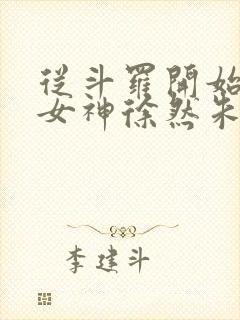 從斗羅開始
女神徐然朱
李建斗